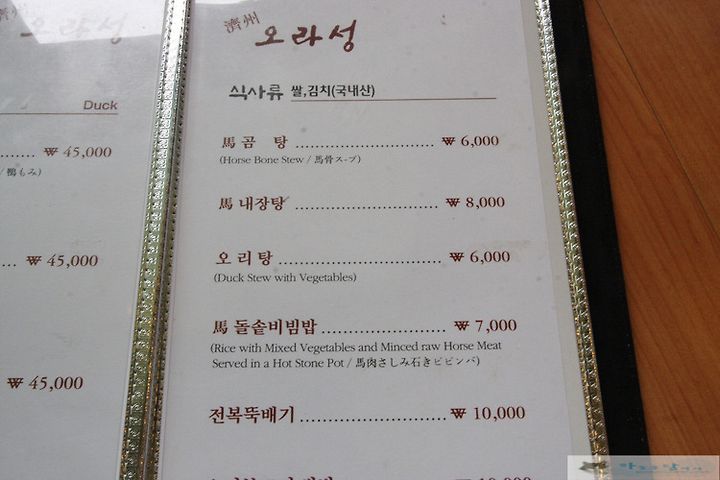 오라성
Duck
₩ 45,000
/ 鴨もみ)
₩ 45,000
₩ 45,000
濟州
오라성
식사류 쌀,김치(국내산)
馬 곰 탕 ₩ 6,000
(Horse Bone Stew / 馬骨スープ)
馬 내장탕 ₩ 8,000
오 리 탕 ₩ 6,000
(Duck Stew with Vegetables)
馬 돌솥비빔밥 ₩ 7,000
(Rice with Mixed Vegetables and Minced raw Horse Meat
Served in a Hot Stone Pot / 馬肉さしみ石きビビンバ)
전복뚝배기 ₩ 10,000